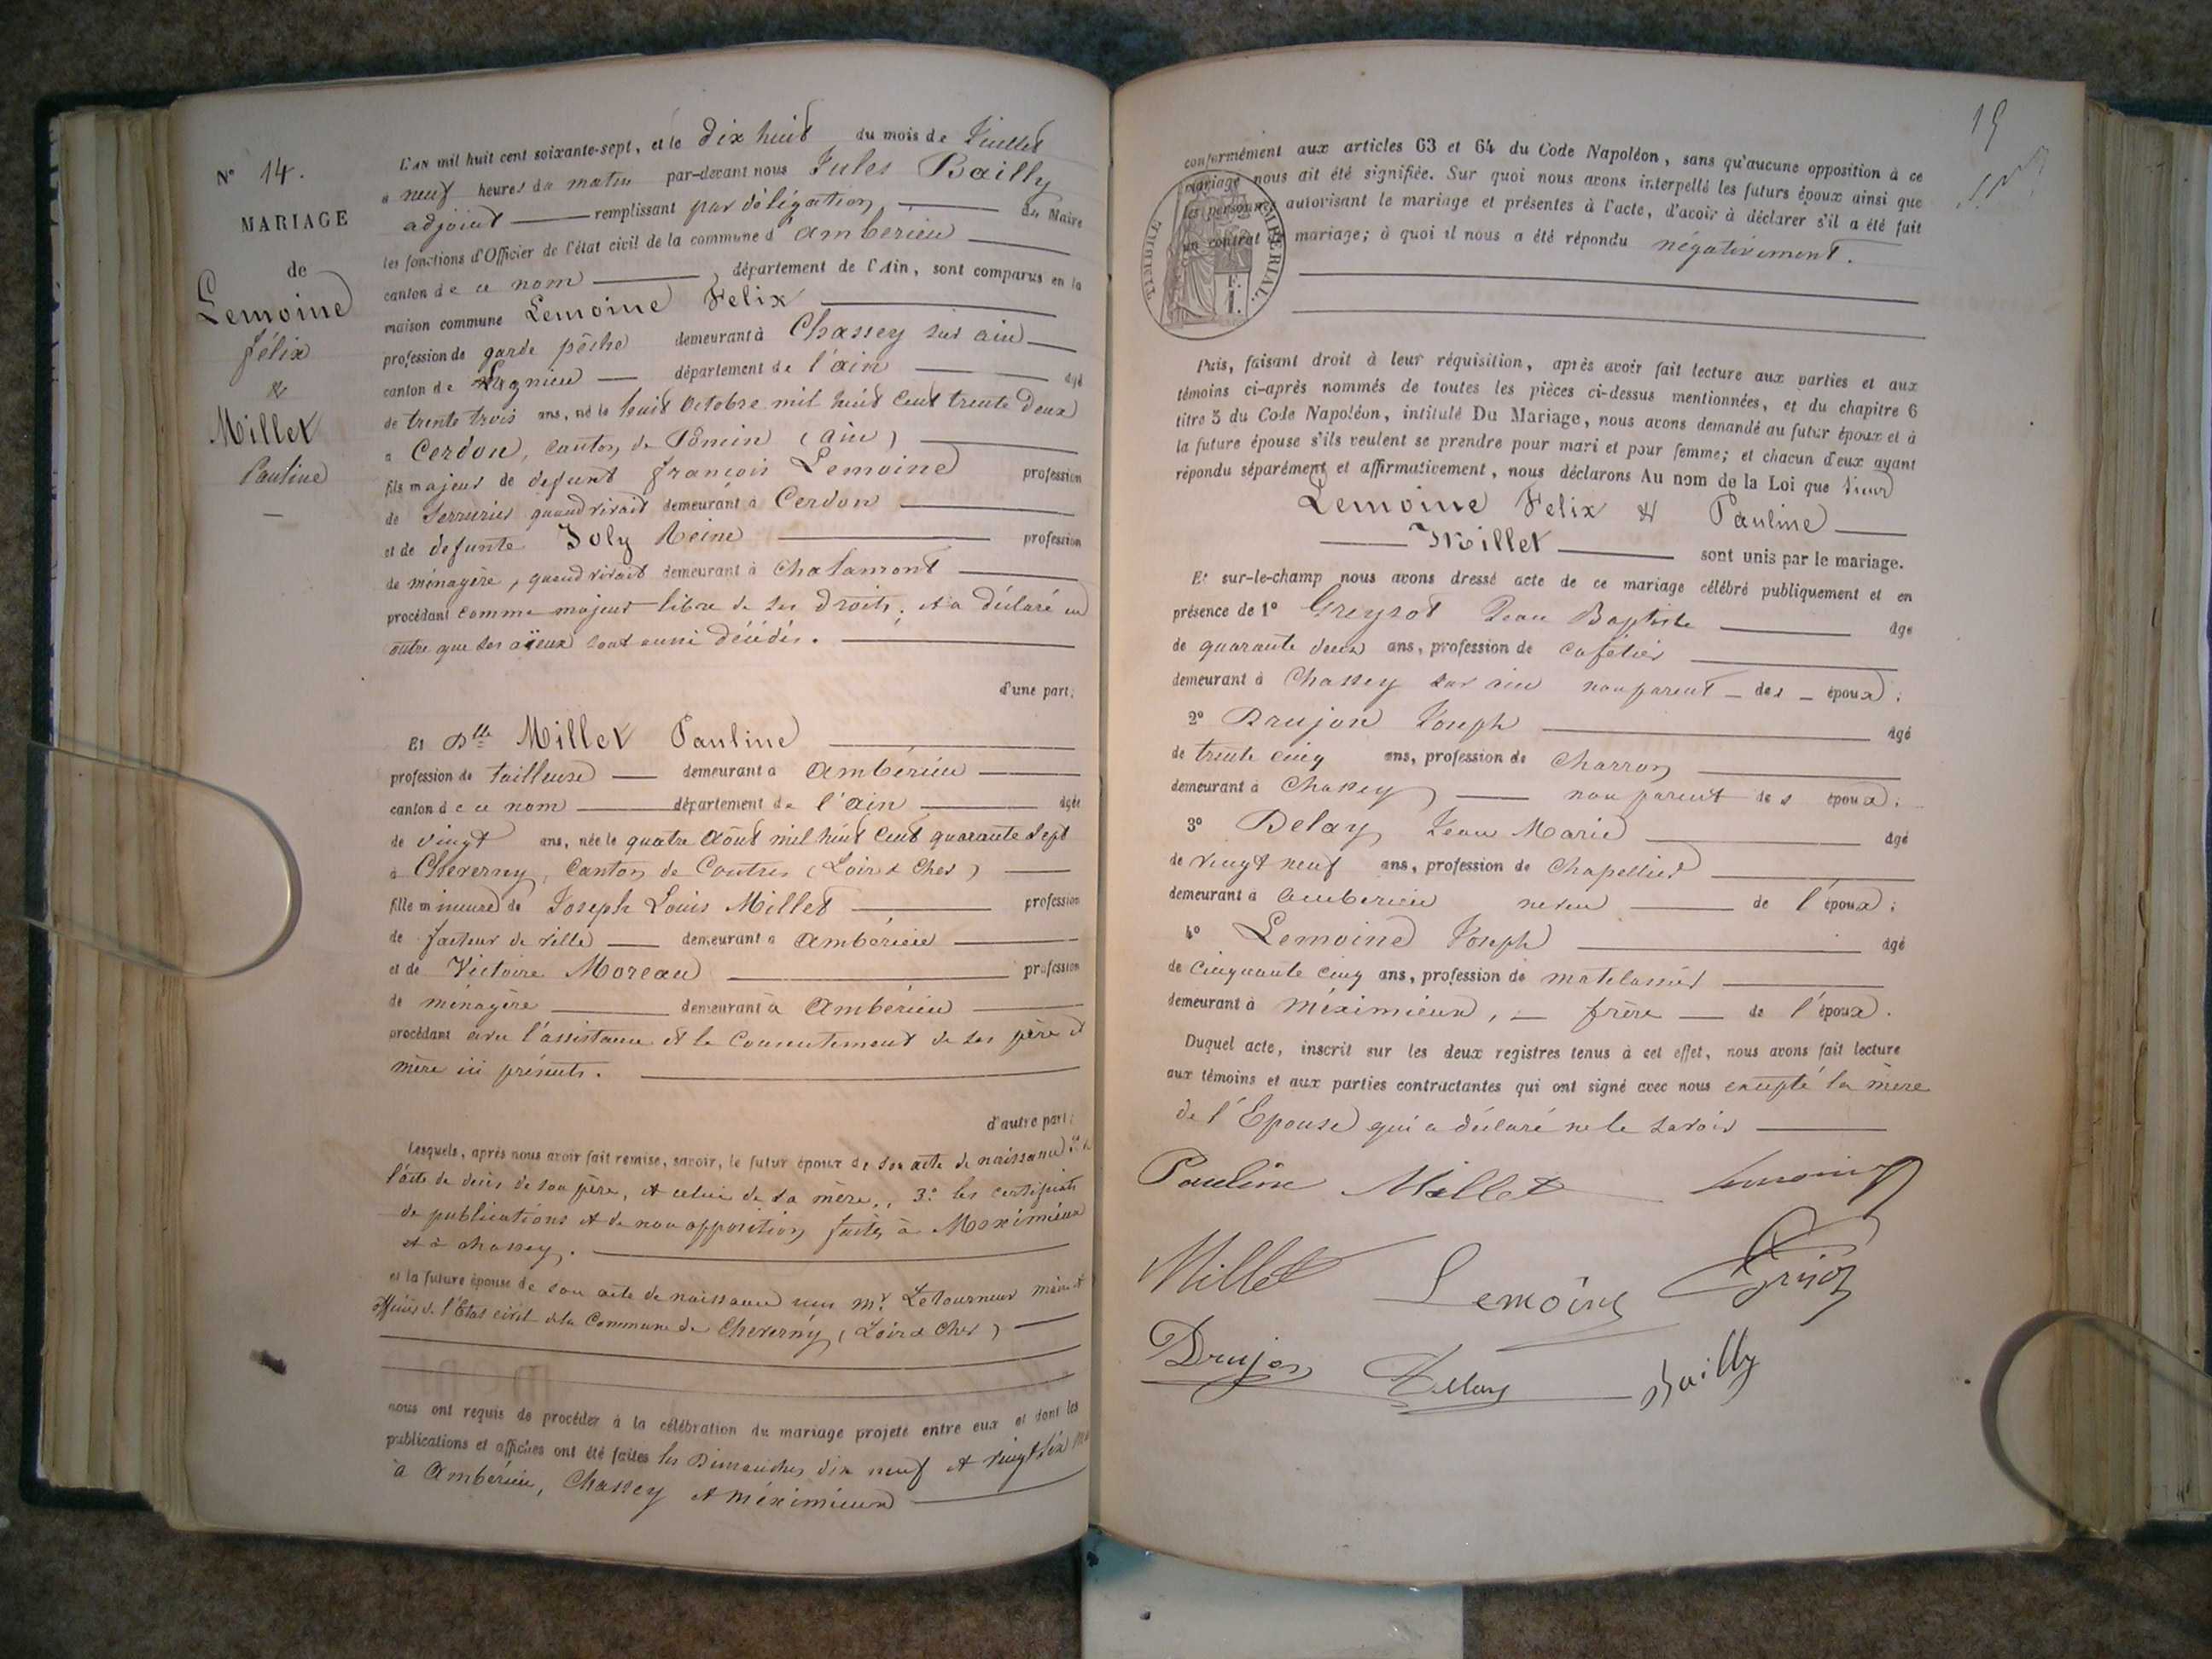 N° 14.
MARIAGE
de
Lemoine
félix
&
Millet
Pauline
L'AN mil huit cent soixante-sept, et le dix huit du mois de Juillet
à neuf heures du matin par-devant nous Jules Bailly
adjoint remplissant par délégation du Maire
les fonctions d'Officier de l'état civil de la commune d'ambérieu
canton de ce nom, département de l'Ain, sont comparus en la
maison commune Lemoine Felix
profession de garde pêche demeurant à Chassey sur ain
canton de Lagnieu département de l'ain âgé
de trente trois ans, né le huit Octobre mil huit cent trente deux
à Cerdon, canton de Poncin (ain)
fils majeur de defunt françois Lemoine profession
de Serrurier quand vivait demeurant à Cerdon
et de defunte Joly Reine profession
de ménagère, quand vivait demeurant à Chalamont
procédant comme majeur libre de ses droits, et a déclaré en
outre que ses aïeux sont aussi décédés.
d'une part;
Et Dlle Millet Pauline
profession de tailleuse demeurant à ambérieu
canton de ce nom département de l'ain âgée
de vingt ans, née le quatre août mil huit cent quarante sept
à Cheverny, Canton de Contres (Loir & Cher)
fille mineure de Joseph Louis Millet profession
de facteur de ville demeurant à ambérieu
et de Victoire Moreau profession
de ménagère demeurant à ambérieu
procédant avec l'assistance et le consentement de ses père et
mère ici présents.
d'autre part;
Lesquels, après nous avoir fait remise, savoir, le futur époux de son acte de naissance
l'acte de décès de son père, et celui de sa mère, 3° les certificats
de publications et de non opposition faites à Meximieux
et à chassey.
et la future épouse de son acte de naissance mr. Letourneur maire et
officier de l'Etat civil de la Commune de Cheverny (Loir & Cher)
nous ont requis de procéder à la célébration du mariage projeté entre eux et dont les
publications et affiches ont été faites les Dimanches dix neuf et vingt six
à Ambérieu, Chassey et méximieux
19
conformément aux articles 63 et 64 du Code Napoléon, sans qu'aucune opposition à ce
mariage nous ait été signifiée. Sur quoi nous avons interpellé les futurs époux ainsi que
les personnes autorisant le mariage et présentes à l'acte, d'avoir à déclarer s'il a été fait
un contrat de mariage; à quoi il nous a été répondu négativement.
TIMBRE IMPÉRIAL
1 F.
Puis, faisant droit à leur réquisition, après avoir fait lecture aux parties et aux
témoins ci-après nommés de toutes les pièces ci-dessus mentionnées, et du chapitre 6
titre 5 du Code Napoléon, intitulé Du Mariage, nous avons demandé au futur époux et à
la future épouse s'ils veulent se prendre pour mari et pour femme; et chacun d'eux ayant
répondu séparément et affirmativement, nous déclarons Au nom de la Loi que Sieur
Lemoine Felix & Pauline
Millet sont unis par le mariage.
Et sur-le-champ nous avons dressé acte de ce mariage célébré publiquement et en
présence de 1° Jean Baptiste âgé
de quarante deux ans, profession de cafetier
demeurant à Chassey sur ain non parent des époux;
2° Drujon Joseph âgé
de trente cinq ans, profession de Charron
demeurant à Chassey non parent des époux;
3° Delay Jean Marie âgé
de vingt neuf ans, profession de Chapellier
demeurant à ambérieu neveu de l'époux;
4° Lemoine Joseph âgé
de cinquante cinq ans, profession de matelassier
demeurant à méximieux, frère de l'époux.
Duquel acte, inscrit sur les deux registres tenus à cet effet, nous avons fait lecture
aux témoins et aux parties contractantes qui ont signé avec nous excepté la mère
de l'Epouse qui a déclaré ne le savoir
Pauline Millet Lemoine
Millet Lemoine
Drujon Delay Bailly